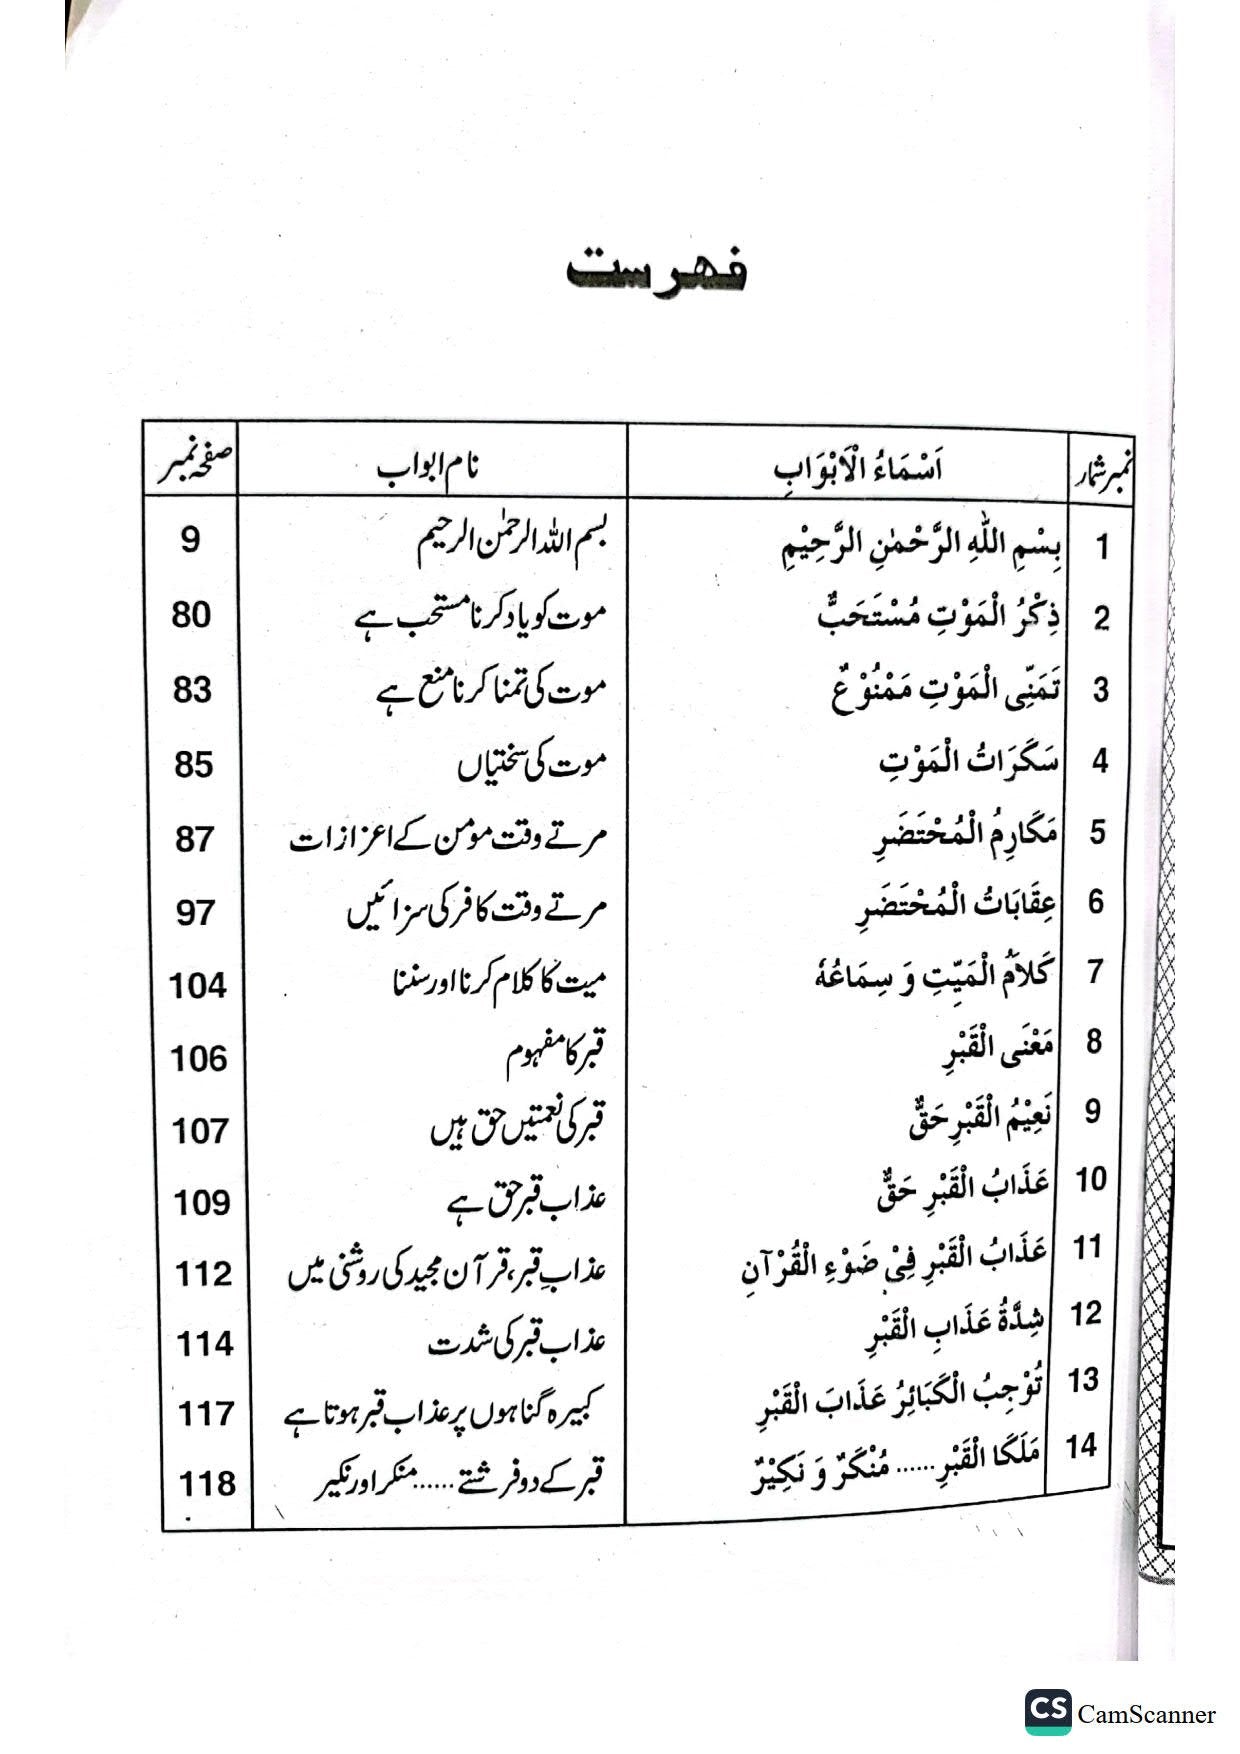 فہرست
نمبر شمار اَسْمَاءُ الْاَبْوَابِ نام ابواب صفحہ نمبر
1 بِسْمِ اللّٰهِ الرَّحْمٰنِ الرَّحِيْمِ بسم اللہ الرحمٰن الرحیم 9
2 ذِكْرُ الْمَوْتِ مُسْتَحَبٌّ موت کو یاد کرنا مستحب ہے 80
3 تَمَنِّى الْمَوْتِ مَمْنُوْعٌ موت کی تمنا کرنا منع ہے 83
4 سَكَرَاتُ الْمَوْتِ موت کی سختیاں 85
5 مَكَارِمُ الْمُحْتَضَرِ مرتے وقت مومن کے اعزازات 87
6 عِقَابَاتُ الْمُحْتَضَرِ مرتے وقت کافر کی سزائیں 97
7 كَلَامُ الْمَيِّتِ وَ سِمَاعُهٗ میت کا کلام کرنا اور سننا 104
8 مَعْنَى الْقَبْرِ قبر کا مفہوم 106
9 نَعِيْمُ الْقَبْرِ حَقٌّ قبر کی نعمتیں حق ہیں 107
10 عَذَابُ الْقَبْرِ حَقٌّ عذاب قبر حق ہے 109
11 عَذَابُ الْقَبْرِ فِيْ ضَوْءِ الْقُرْآنِ عذابِ قبر، قرآن مجید کی روشنی میں 112
12 شِدَّةُ عَذَابِ الْقَبْرِ عذاب قبر کی شدت 114
13 تُوْجِبُ الْكَبَائِرُ عَذَابَ الْقَبْرِ کبیرہ گناہوں پر عذاب قبر ہوتا ہے 117
14 مَلَكَا الْقَبْرِ...... مُنْكَرٌ وَ نَكِيْرٌ قبر کے دو فرشتے...... منکر اور نکیر 118
CS CamScanner